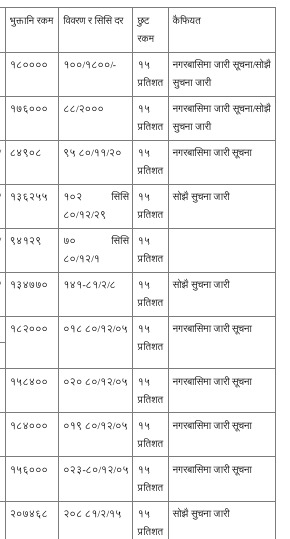 भुक्तानि रकम विवरण र सिसि दर छुट कैफियत
रकम
१८०००० १००/१८००/- १५ नगरबासिमा जारी सूचना/सोझै
प्रतिशत सुचना जारी
१७६००० ८८/२००० १५ नगरबासिमा जारी सूचना/सोझै
प्रतिशत सुचना जारी
८४९०८ ९५ ८०/११/२० १५ नगरबासिमा जारी सूचना
प्रतिशत
१३६२५५ १०२ सिसि १५ सोझै सुचना जारी
८०/१२/२९ प्रतिशत
९४१२९ ७० सिसि १५
८०/१२/१ प्रतिशत
१३४७७० १४१-८१/२/८ १५ सोझै सुचना जारी
प्रतिशत
१८२००० ०१८ ८०/१२/०५ १५ नगरबासिमा जारी सूचना
प्रतिशत
१५८४०० ०२० ८०/१२/०५ १५ नगरबासिमा जारी सूचना
प्रतिशत
१८४००० ०१९ ८०/१२/०५ १५ नगरबासिमा जारी सूचना
प्रतिशत
१५६००० ०२३-८०/१२/०५ १५ नगरबासिमा जारी सूचना
प्रतिशत
२०७४६८ २०८ ८१/२/१५ १५ सोझै सुचना जारी
प्रतिशत